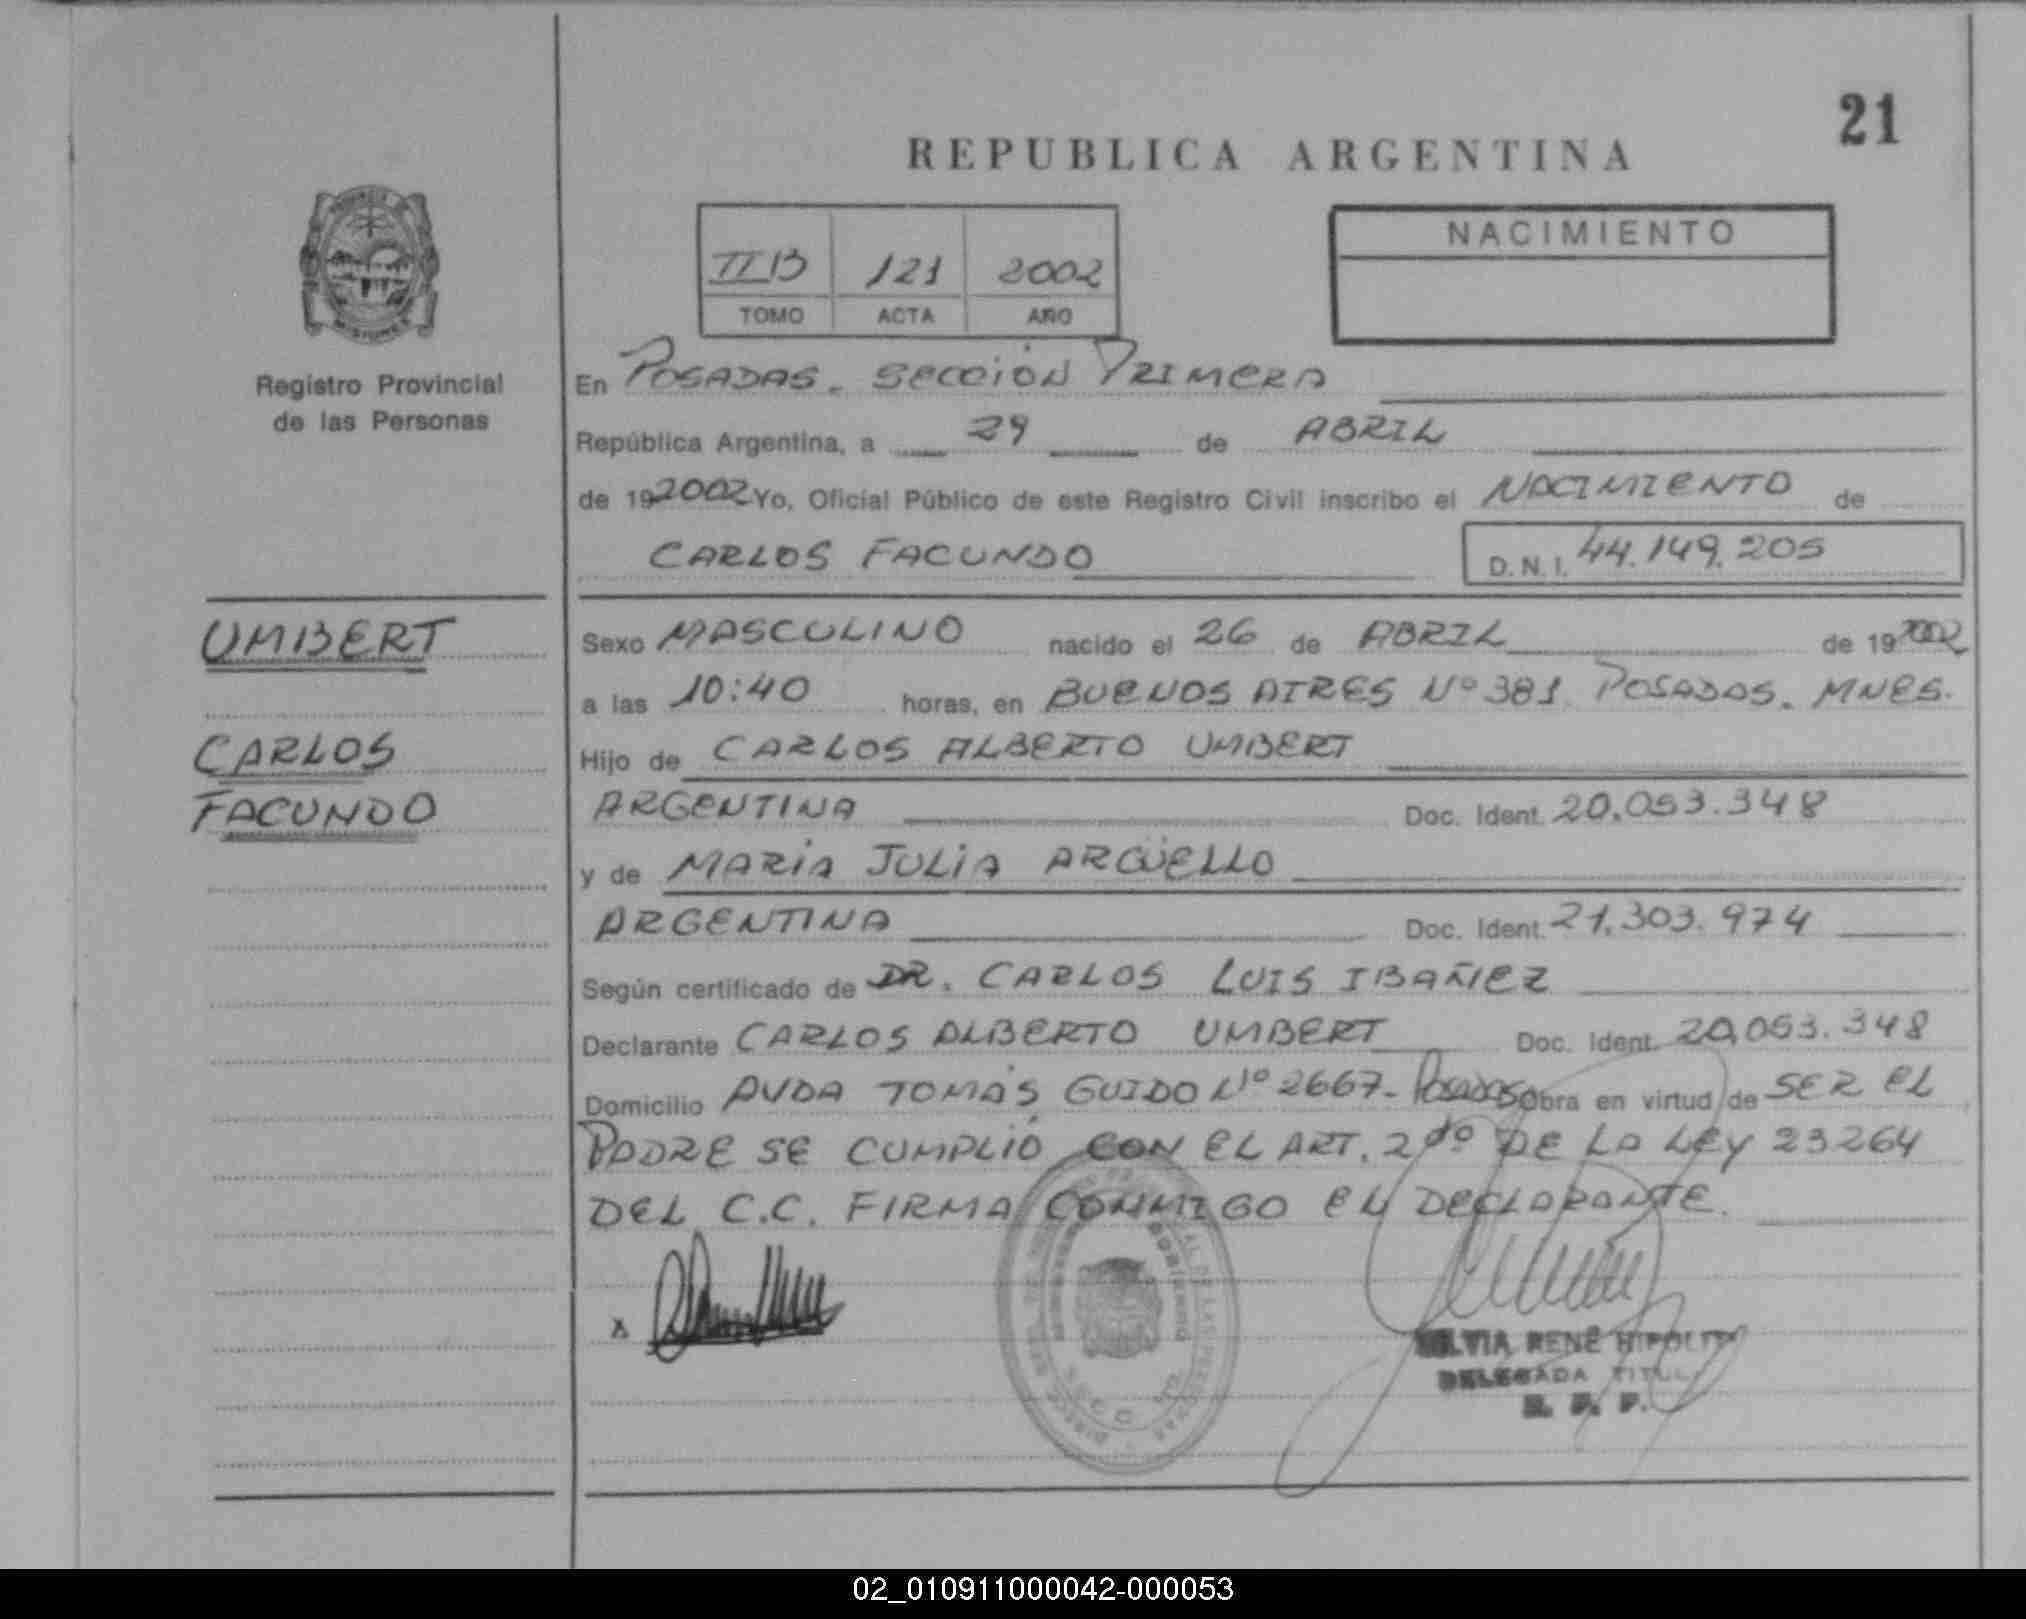 21
REPUBLICA ARGENTINA
II B 121 2002
TOMO ACTA AÑO
NACIMIENTO
MISIONES
Registro Provincial
de las Personas
En POSADAS. SECCIÓN PRIMERA
República Argentina, a 29 de ABRIL
de 192002 Yo, Oficial Público de este Registro Civil inscribo el NACIMIENTO de
CARLOS FACUNDO D.N.I. 44.149.205
UMBERT
CARLOS
FACUNDO
Sexo MASCULINO nacido el 26 de ABRIL de 192002
a las 10:40 horas, en BUENOS AIRES Nº 381. POSADAS. MNES.
Hijo de CARLOS ALBERTO UMBERT
ARGENTINA Doc. Ident. 20.053.348
y de MARÍA JULIA ARGÜELLO
ARGENTINA Doc. Ident. 21.303.974
Según certificado de DR. CARLOS LUIS IBAÑEZ
Declarante CARLOS ALBERTO UMBERT Doc. Ident. 20.053.348
Domicilio AVDA TOMÁS GUIDO Nº 2667- POSADAS Obra en virtud de SER EL
PADRE SE CUMPLIÓ CON EL ART. 2do DE LA LEY 23264
DEL C.C. FIRMA CONMIGO EL DECLARANTE.
x
SILVIA RENÉ HIPOLITO
DELEGADA TITUL
R. P. P.
02_010911000042-000053